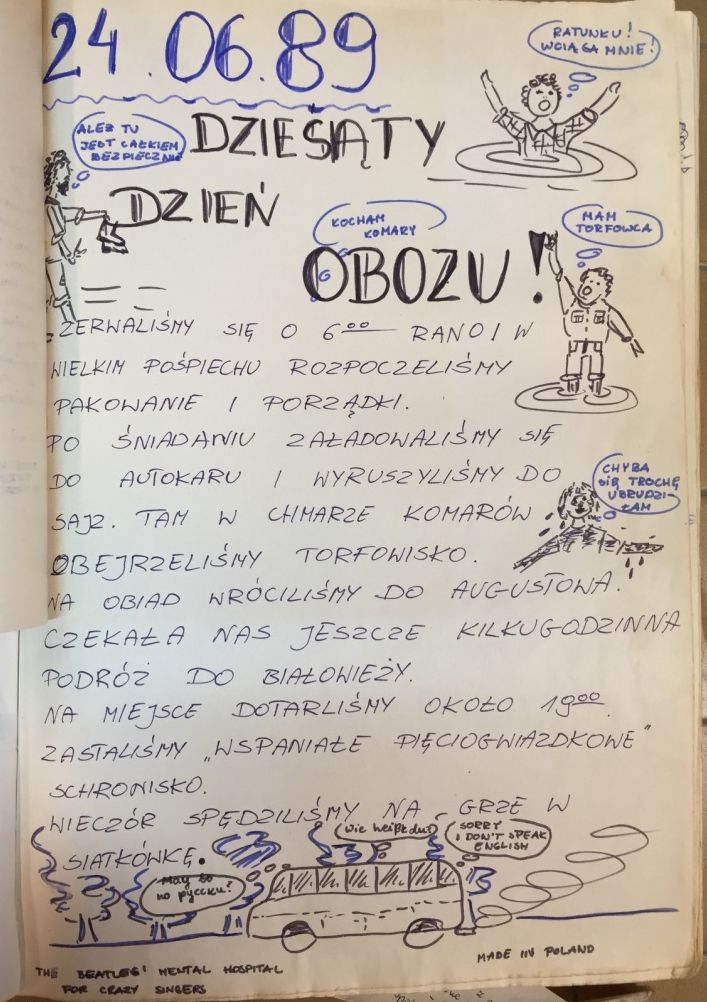 24.06.89
RATUNKU!
WCIĄGA MNIE!
ALEŻ TU
JEST CAŁKIEM
BEZPIECZNIE
DZIESIĄTY
DZIEŃ
KOCHAM
KOMARY
MAM
TORFOWCA
OBOZU!
ZERWALIŚMY SIĘ O 6⁰⁰ RANO I W
WIELKIM POŚPIECHU ROZPOCZELIŚMY
PAKOWANIE I PORZĄDKI.
PO ŚNIADANIU ZAŁADOWALIŚMY SIĘ
DO AUTOKARU I WYRUSZYLIŚMY DO
SAJZ. TAM W CHMARZE KOMARÓW
OBEJRZELIŚMY TORFOWISKO.
CHYBA
SIĘ TROCHĘ
UBRUDZI-
ŁAM
NA OBIAD WRÓCILIŚMY DO AUGUSTOWA.
CZEKAŁA NAS JESZCZE KILKUGODZINNA
PODRÓŻ DO BIAŁOWIEŻY.
NA MIEJSCE DOTARLIŚMY OKOŁO 19⁰⁰.
ZASTALIŚMY „WSPANIAŁE PIĘCIOGWIAZDKOWE"
SCHRONISKO.
WIECZÓR SPĘDZILIŚMY NA GRZE W
SIATKÓWKĘ.
Wie heißt du?
SORRY
I DON'T SPEAK
ENGLISH
по русски?
MADE IN POLAND
THE BEATLES' MENTAL HOSPITAL
FOR CRAZY SINGERS